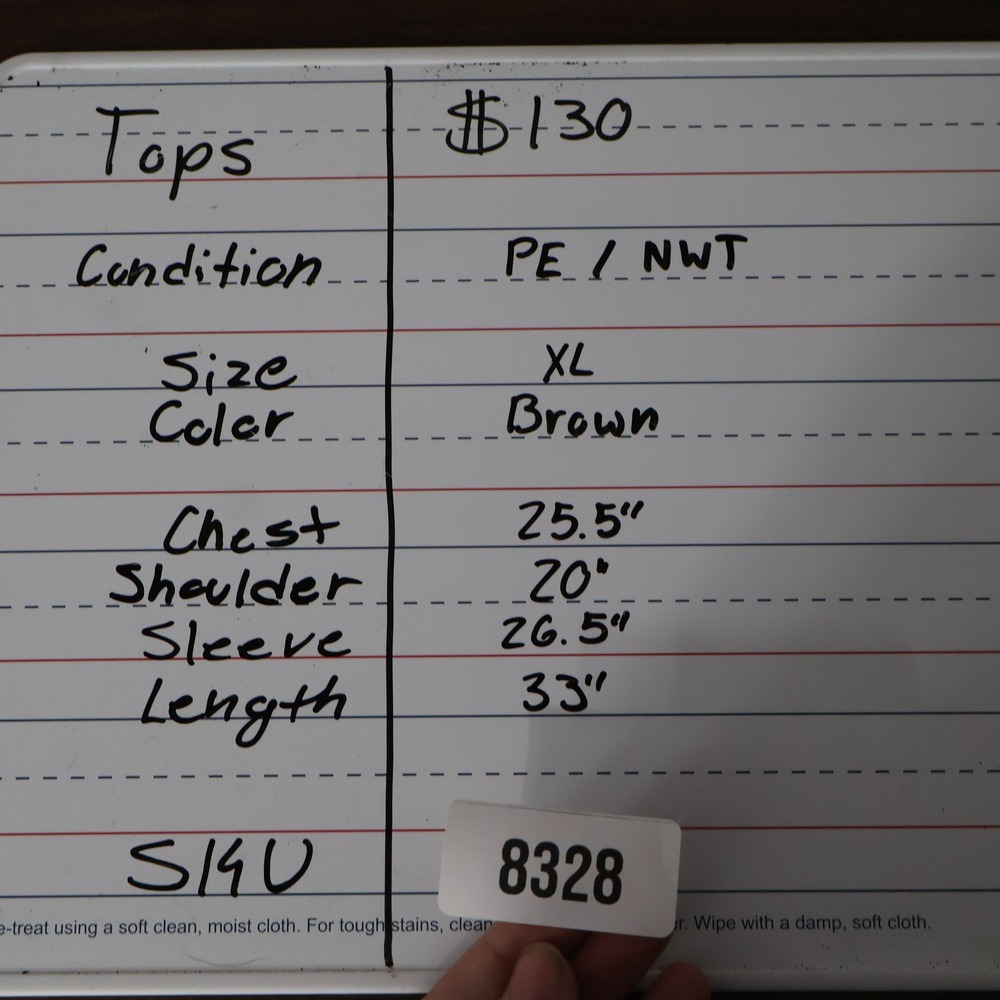 Tops $130
Condition PE / NWT
Size XL
Color Brown
Chest 25.5"
Shoulder 20"
Sleeve 26.5"
Length 33"
SKU 8328
e-treat using a soft clean, moist cloth. For tough stains, clean r. Wipe with a damp, soft cloth.